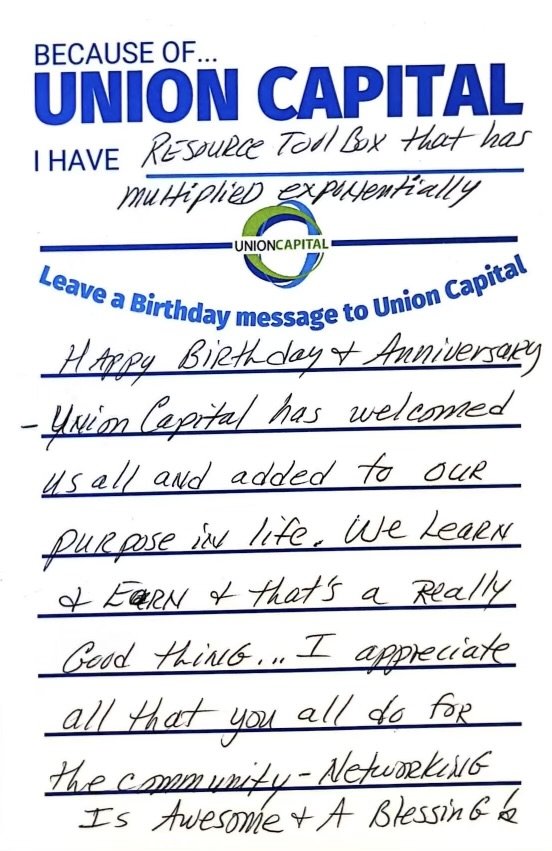 BECAUSE OF...
UNION CAPITAL
I HAVE RESOURCE Tool Box that has
multiplied exponentially
UNIONCAPITAL
Leave a Birthday message to Union Capital
HAPPy BiRthday & AnniversaRy
- Union Capital has welcomed
us all and added to OUR
puRpose in life. We LeaRN
& EaRN & that's a Really
Good thiNG... I appreciate
all that you all do foR
the community - NetwoRKiNG
Is Awesome & A BlessinG!